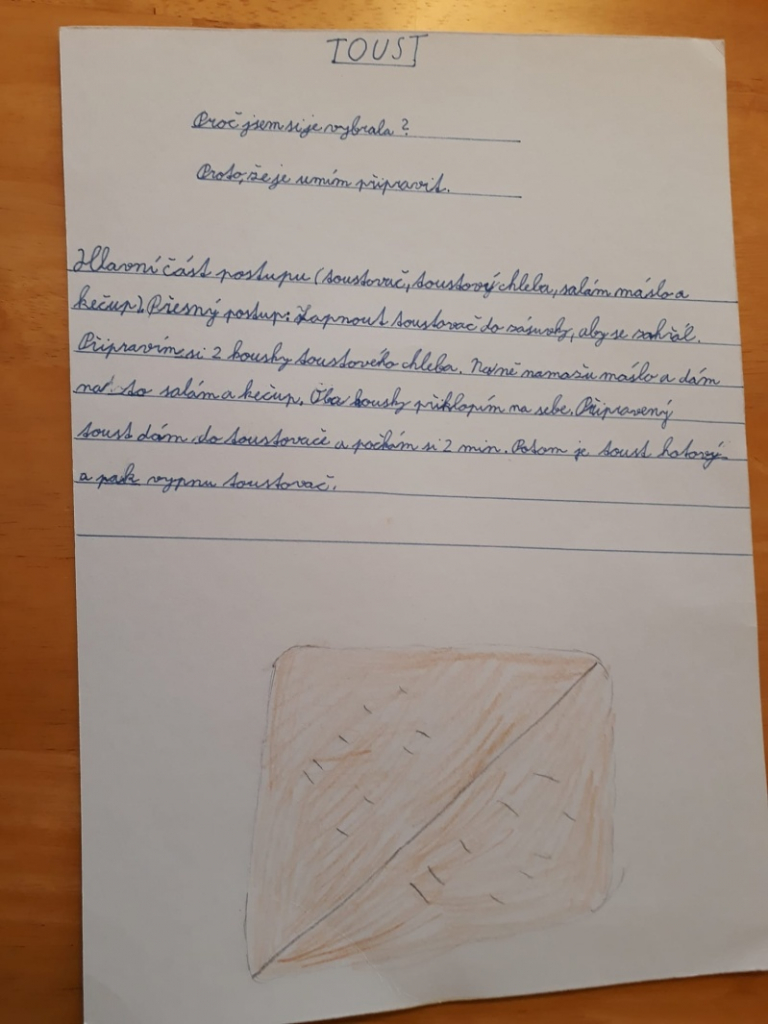 TOUST
Proč jsem si je vybrala?
Proto, že je umím připravit.
Hlavní část postupu (toustovač, toustový chleba, salám máslo a
kečup). Přesný postup: Zapnout toustovač do zásuvky, aby se zahřál.
Připravím si 2 kousky toustového chleba. Na ně namažu máslo a dám
na to salám a kečup. Oba kousky přiklopím na sebe. Připravený
toust dám do toustovače a počkám si 2 min. Potom je toust hotový
a pak vypnu toustovač.